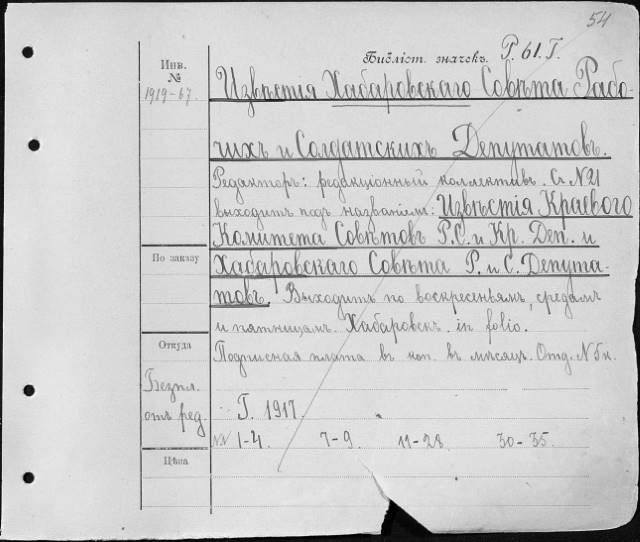 54
Библіот. значекъ. Р. 61. Г.
Инв.
№
1919-67.
Извѣстія Хабаровскаго Совѣта Рабо-
чихъ и Солдатскихъ Депутатовъ.
Редакторъ: редакціонный коллективъ. Съ № 21
выходитъ подъ названіемъ: Извѣстія Краевого
Комитета Совѣтовъ Р. С. и Кр. Деп. и
По заказу
Хабаровскаго Совѣта Р. и С. Депута-
товъ. Выходитъ по воскресеньямъ, средамъ
и пятницамъ. Хабаровскъ. in folio.
Откуда
Подписная плата въ коп. въ мѣсяцъ. Отд. № 5 к.
Безпл.
отъ ред.
Г. 1917.
NN 1-4. 7-9. 11-28. 30-35.
Цѣна